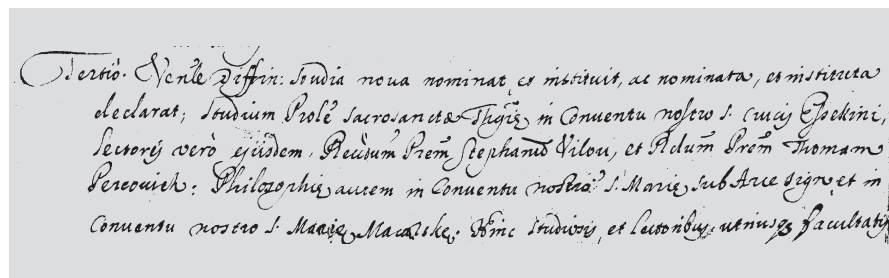 Tertiò. Ven͞le Diffin: Studia nova nominat et instituit, ac nominata, et instituta
declarat; Studium Prolē sacrosanctæ Th͞giæ in Conventu nostro S. Crucis Essekini,
Lectores verò ejusdem, R͞dum P͞rem Stephanū Vilov, et R͞dum P͞rem Thomam
Percovich: Philosophiæ autem in Conventu nostro S. Mariæ sub Arce et in
Conventu nostro S. Mariæ. Hinc Studiosis, et Lectoribus utriusq3 facultatis